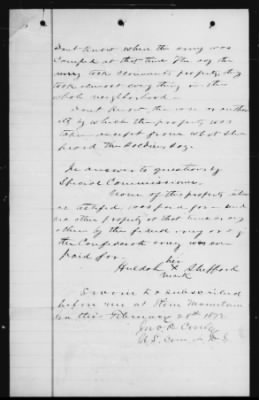 Don't know where the army was
Camped at that time. The day the
army took claimants property they
took almost every thing in the
whole neighborhood.
Don't know the use or author
ity by which the property was
taken except from what she
heard the soldiers say.
In answer to questions by
Special Commissioner.
None of this property
as testified to was paid for and
no other property at that time or any
other by the federal army or by
the Confederate army was ever
paid for.
her
Huldah X Shefford
mark
Sworn to & subscribed
before me at
Ga this February 28th 1873
Jno. R.
U.S. Com